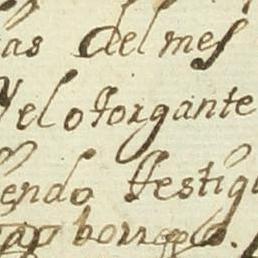 as del mes
y el otorgante
endo testig
borrego.